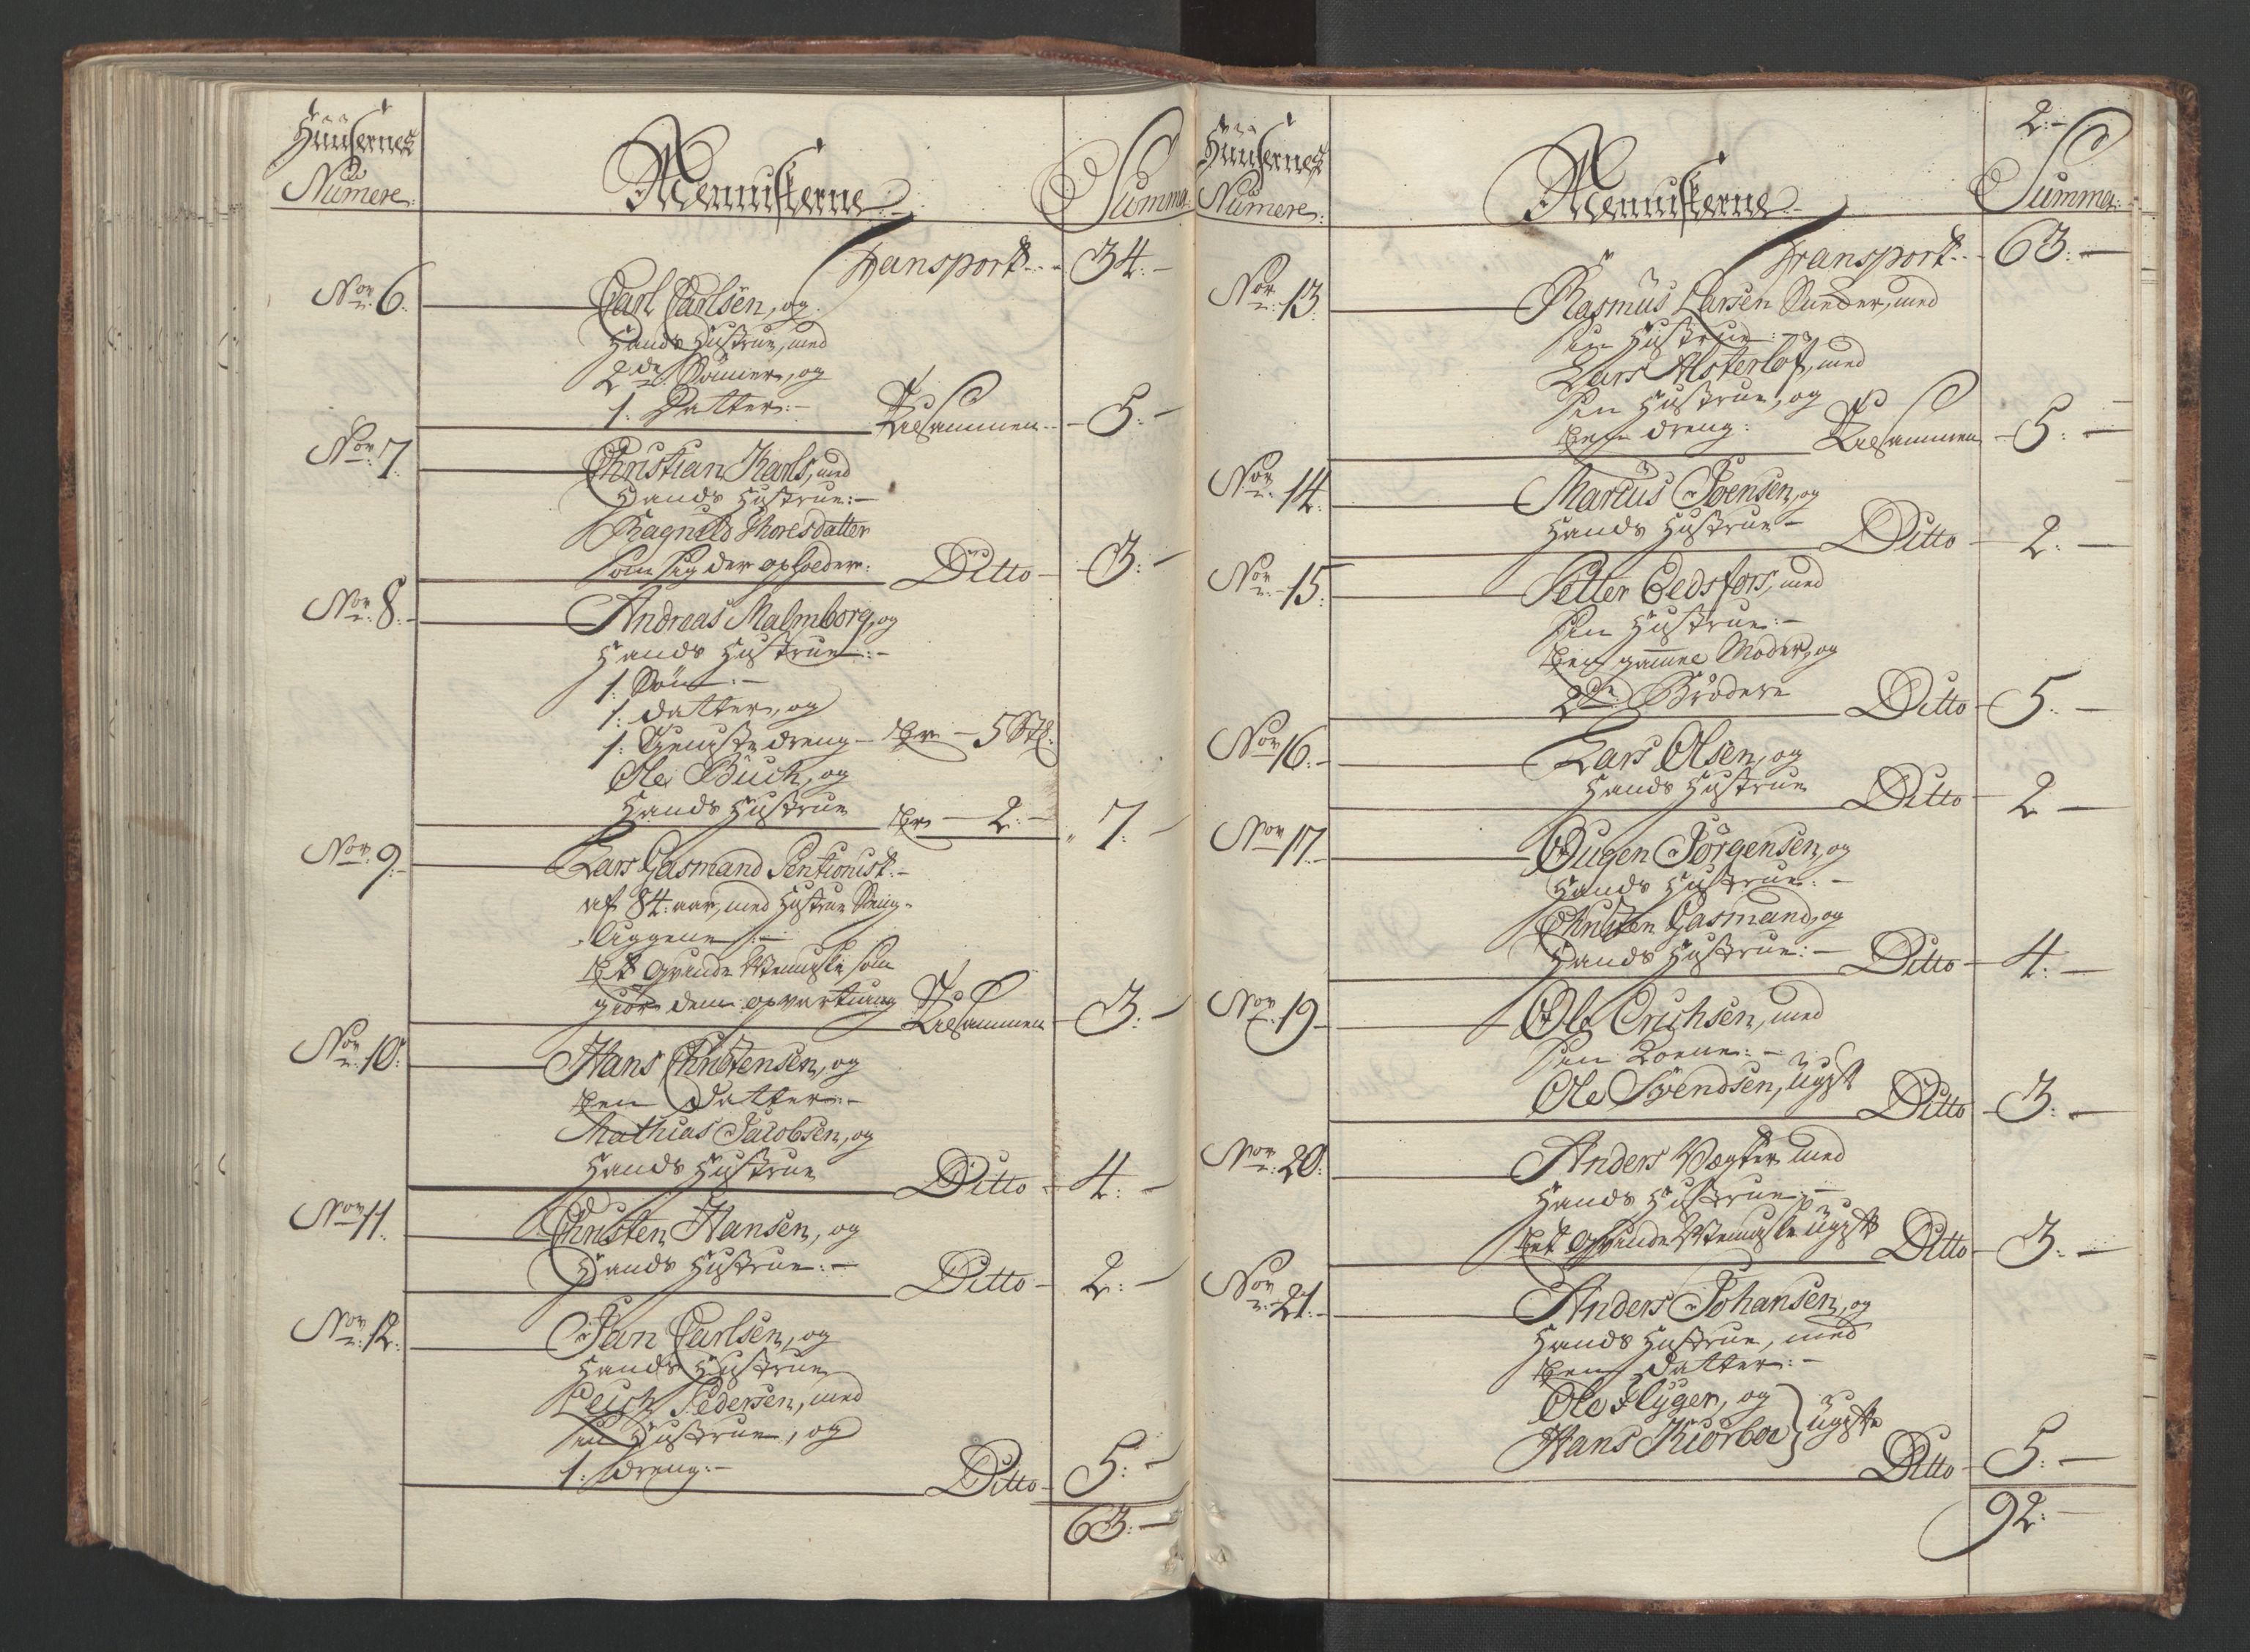 Huusernes
Numere
Menniskerne
Summa
Transport 34.
No 6. Carl Carlsen, og
Hands Hustrue, med
2de Sönner, og
1. Datter. Tilsammen 5.
No 7. Christian Karls, med
Hands Hustrue.
Ragnild Thoresdatter
som sig der opholder. Ditto 3.
No 8. Andreas Malmborg, og
Hands Hustrue.
1. Sön.
1. Datter, og
1. Tieniste dreng er 5 Stk.
Ole Buch, og
Hands Hustrue er 2. 7.
No 9. Lars Gasmand Pentionist.
af 84. aar, med Hustrue Seng-
liggene.
Et Qvinde Menniske som
giör dem opvartning Tilsammen 3.
No 10. Hans Christensen, og
Een Datter.
Mathias Jacobsen, og
Hands Hustrue Ditto 4.
No 11. Christen Hansen, og
Hands Hustrue. Ditto 2.
No 12. Jan Carlsen, og
Hands Hustrue
Pedersen, med
sin Hustrue, og
1. dreng. Ditto 5.
63.
2.
Huusernes
Numere.
Menniskerne
Summa.
Transport 63.
No 13. Rasmus Larsen Snedker, med
sin Hustrue.
Lars Alsterlöf, med
sin Hustrue, og
Een dreng. Tilsammen 5.
No 14. Marcus Svensen, og
Hands Hustrue Ditto 2.
No 15. Petter Eedsfors, med
sin Hustrue.
Een gammel Moder, og
2de Brödere Ditto 5.
No 16. Lars Olsen, og
Hands Hustrue Ditto 2
No 17. Ougen Jörgensen, og
Hands Hustrue.
Christen Gasmand, og
Hands Hustrue. Ditto 4.
No 19. Ole Erichsen, med
sin Kone.
Ole Svendsen, ugift Ditto 3.
No 20. Anders Vægter med
Hands Hustrue.
Et Qvinde Menniske ugift Ditto 3.
No 21. Anders Johansen, og
Hands Hustrue, med
Een Datter.
Ole Flyger, og
Hans Kiörboe } ugifte
Ditto 5.
92.